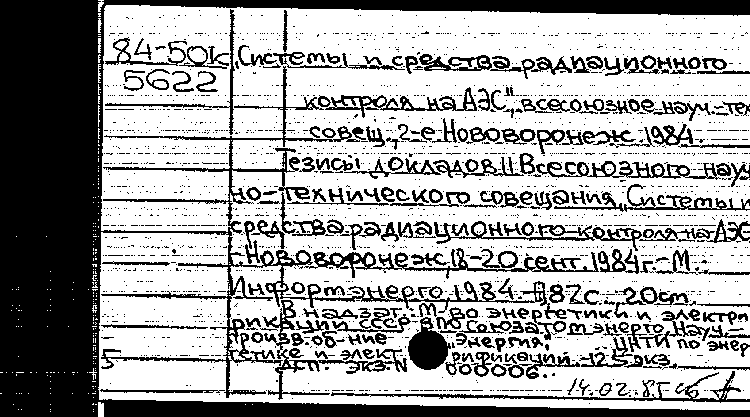 84-50к Системы и средства радиационного
5622
контроля на АЭС", всесоюзное науч.-тех
совещ., 2-е. Нововоронеж. 1984.
Тезисы докладов II Всесоюзного науч
но-технического совещания „Системы и
средства радиационного контроля на АЭС
г. Нововоронеж, 18-20 сент. 1984 г.- М.:
Информэнерго, 1984.- 87 с. 20 см.
В надзаг.: М-во энергетики и электри
фикации СССР. ВПО Союзатомэнерго. Науч.-
произв. об-ние "Энергия". ЦНТИ по энер
5 гетике и элект рификации. -125 экз.
ДСП. Экз. N 000006.
14.02.85